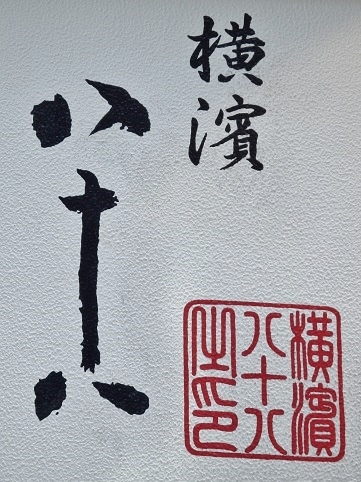 横濱
八十八
横濱
八十八
之印